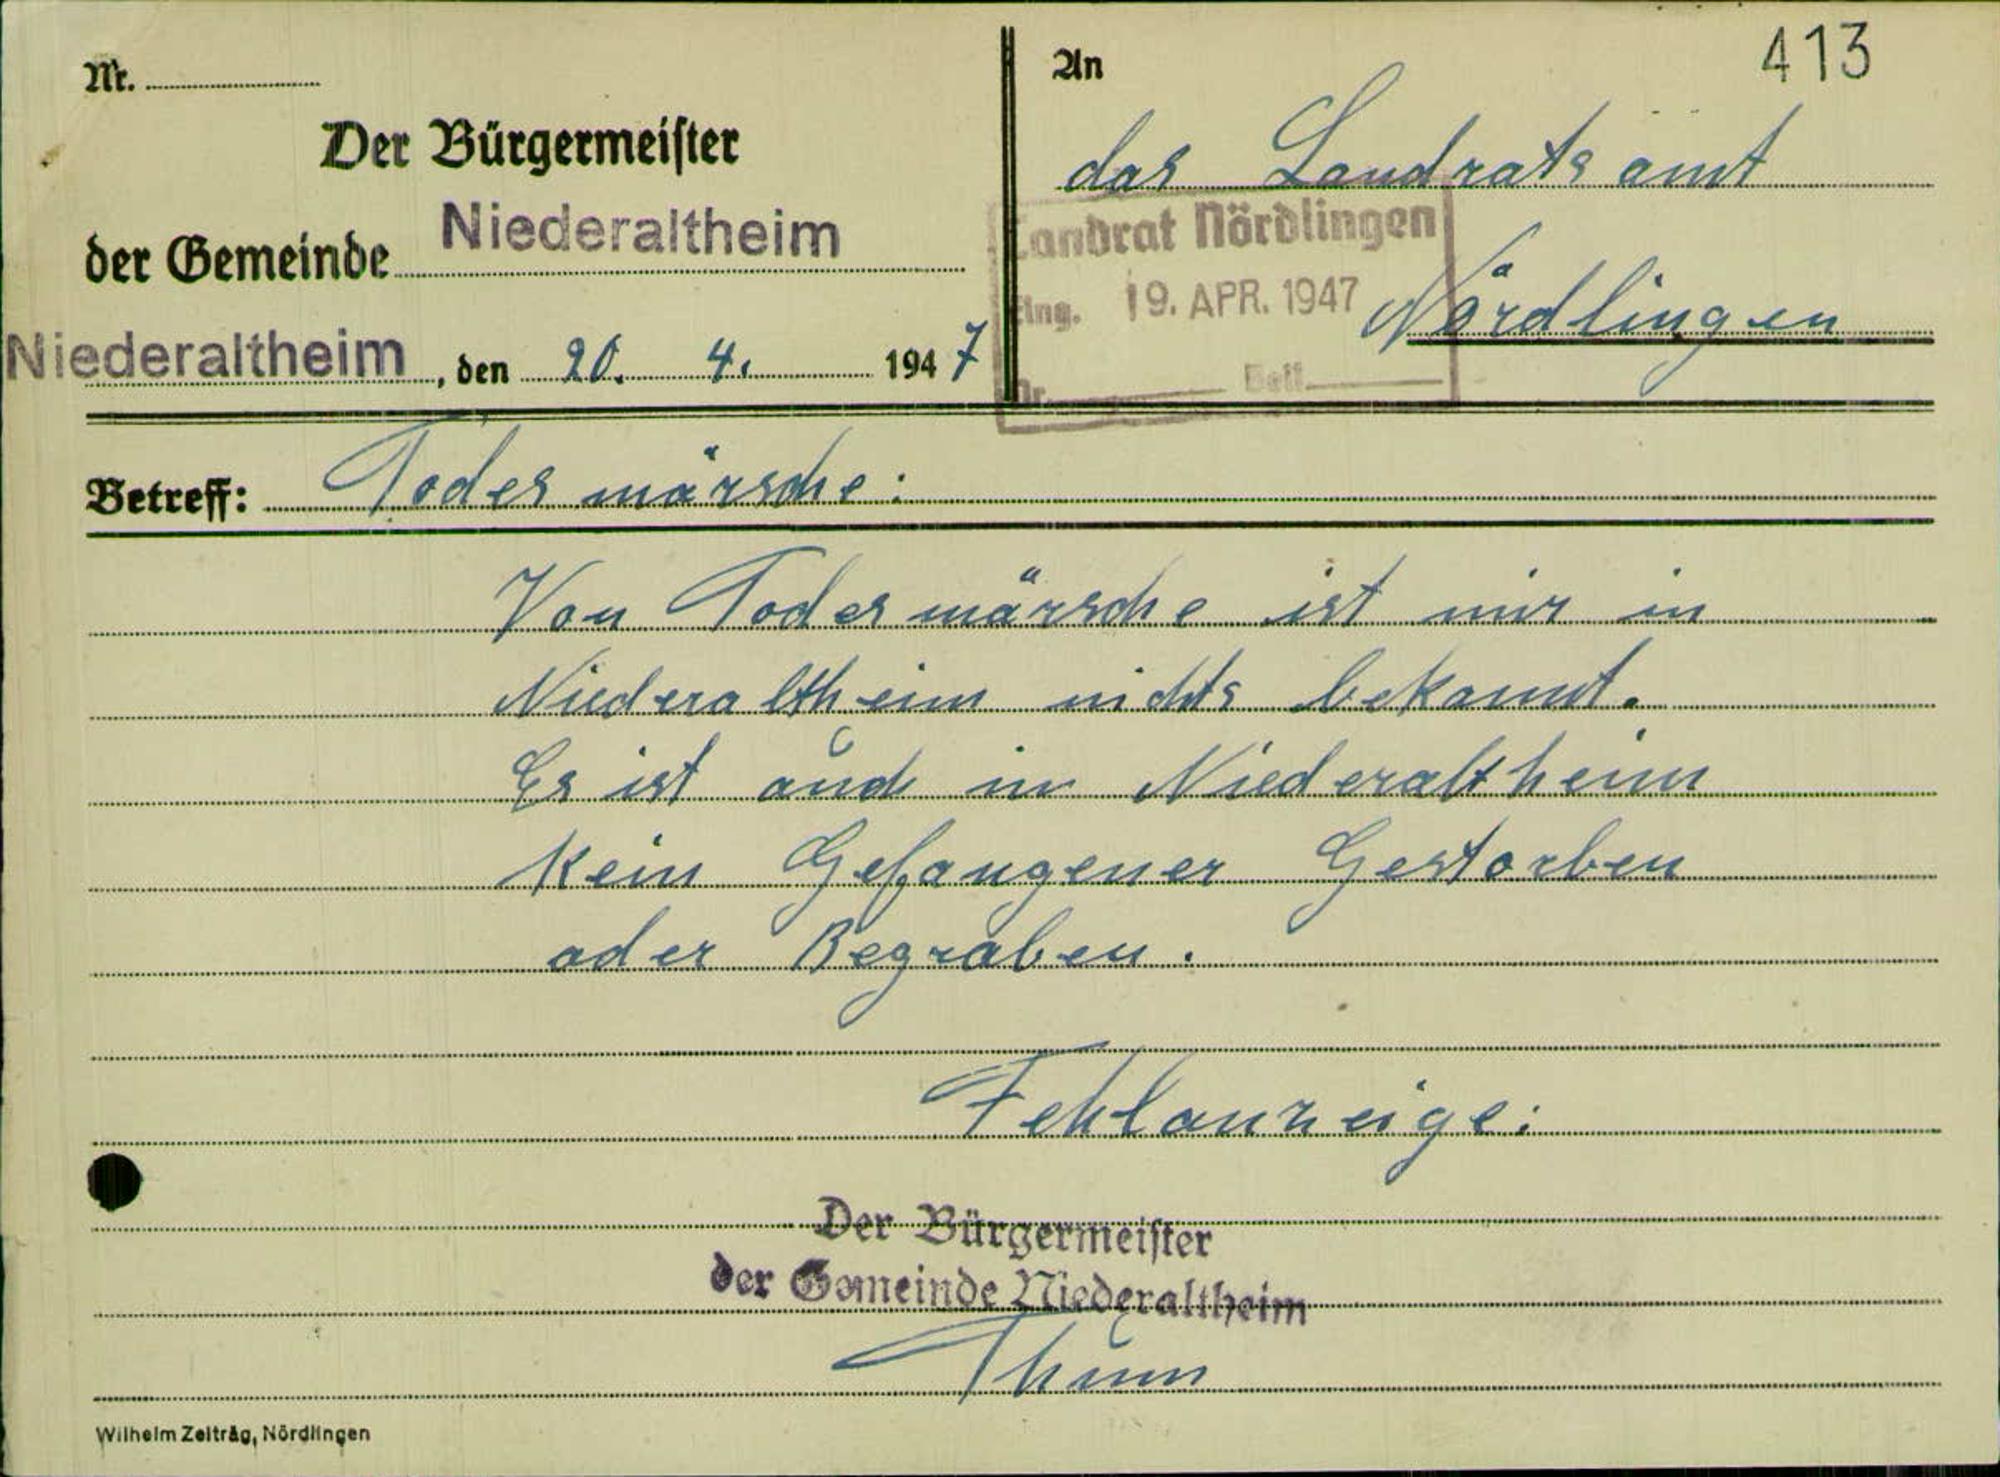 Nr.
Der Bürgermeister
der Gemeinde Niederaltheim
Niederaltheim, den 20. 4. 1947
An
413
das Landratsamt
Landrat Nördlingen
Eing. 19. APR. 1947
Nördlingen
Nr. Beil.
Betreff: Todesmärsche:
Von Todesmärsche ist mir in
Niederaltheim nichts bekannt.
Es ist auch in Niederaltheim
Kein Gefangener Gestorben
oder Begraben.
Fehlanzeige:
Der Bürgermeister
der Gemeinde Niederaltheim
Thum
Wilhelm Zeiträg, Nördlingen